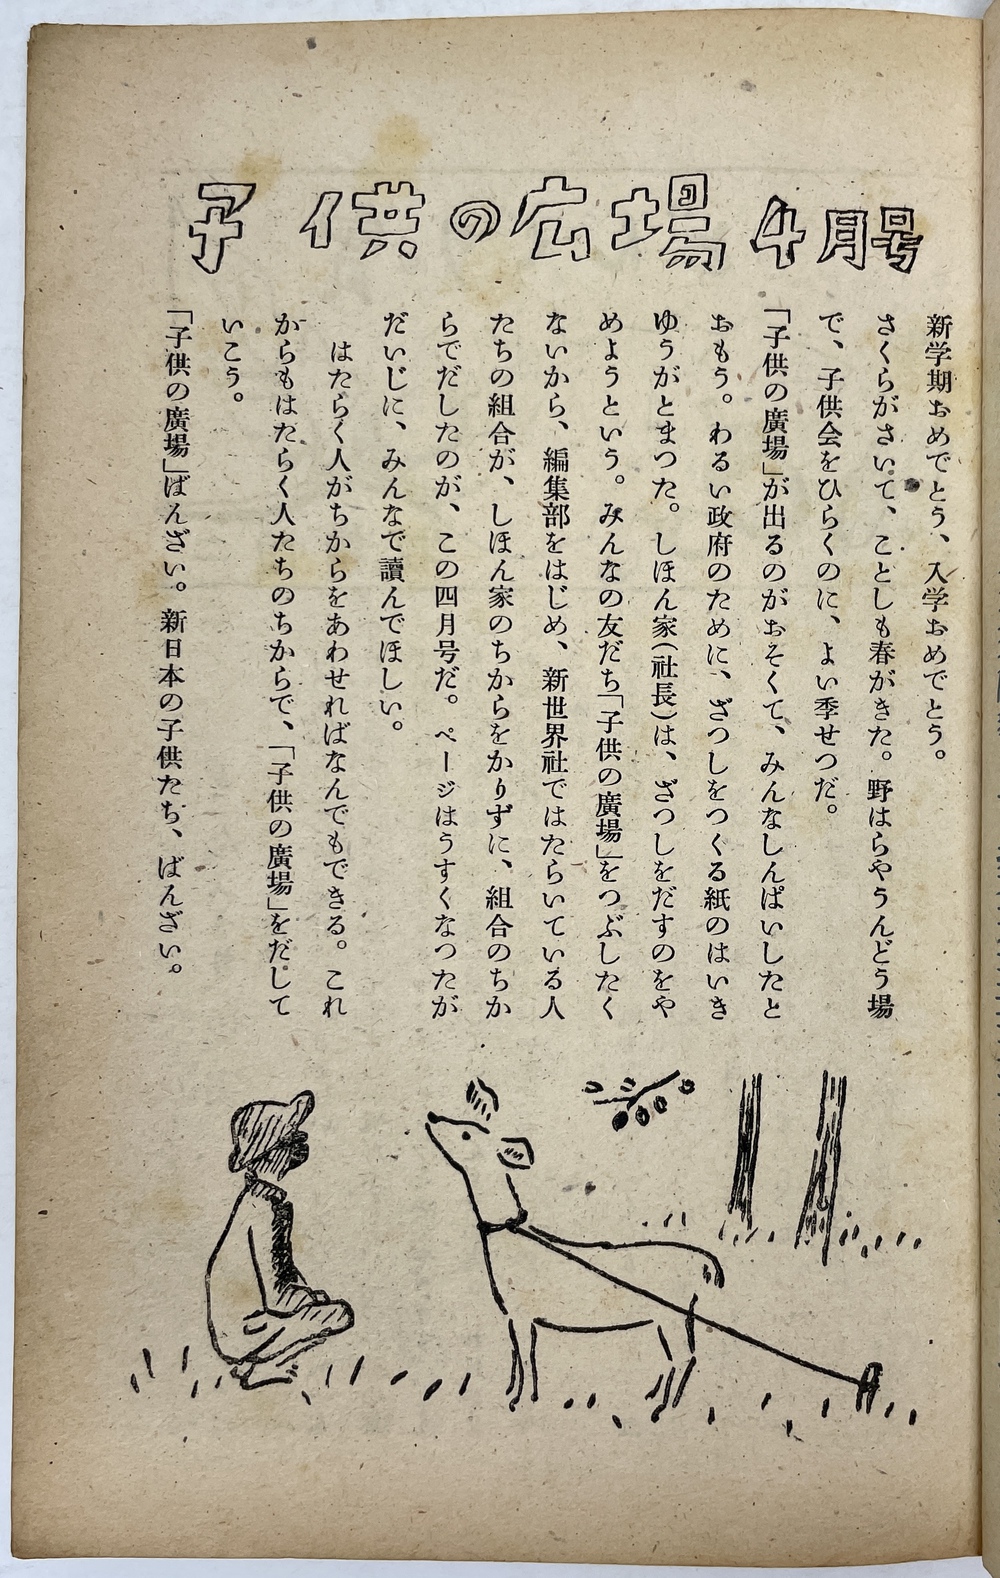 子供の広場 4月号
新学期おめでとう、入学おめでとう。
さくらがさいて、ことしも春がきた。野はらやうんどう場
で、子供会をひらくのに、よい季せつだ。
「子供の廣場」が出るのがおそくて、みんなしんぱいしたと
おもう。わるい政府のために、ざつしをつくる紙のはいき
ゆうがとまつた。しほん家(社長)は、ざつしをだすのをや
めようという。みんなの友だち「子供の廣場」をつぶしたく
ないから、編集部をはじめ、新世界社ではたらいている人
たちの組合が、しほん家のちからをかりずに、組合のちか
らでだしたのが、この四月号だ。ページはうすくなつたが
だいじに、みんなで讀んでほしい。
はたらく人がちからをあわせればなんでもできる。これ
からもはたらく人たちのちからで、「子供の廣場」をだして
いこう。
「子供の廣場」ばんざい。新日本の子供たち、ばんざい。